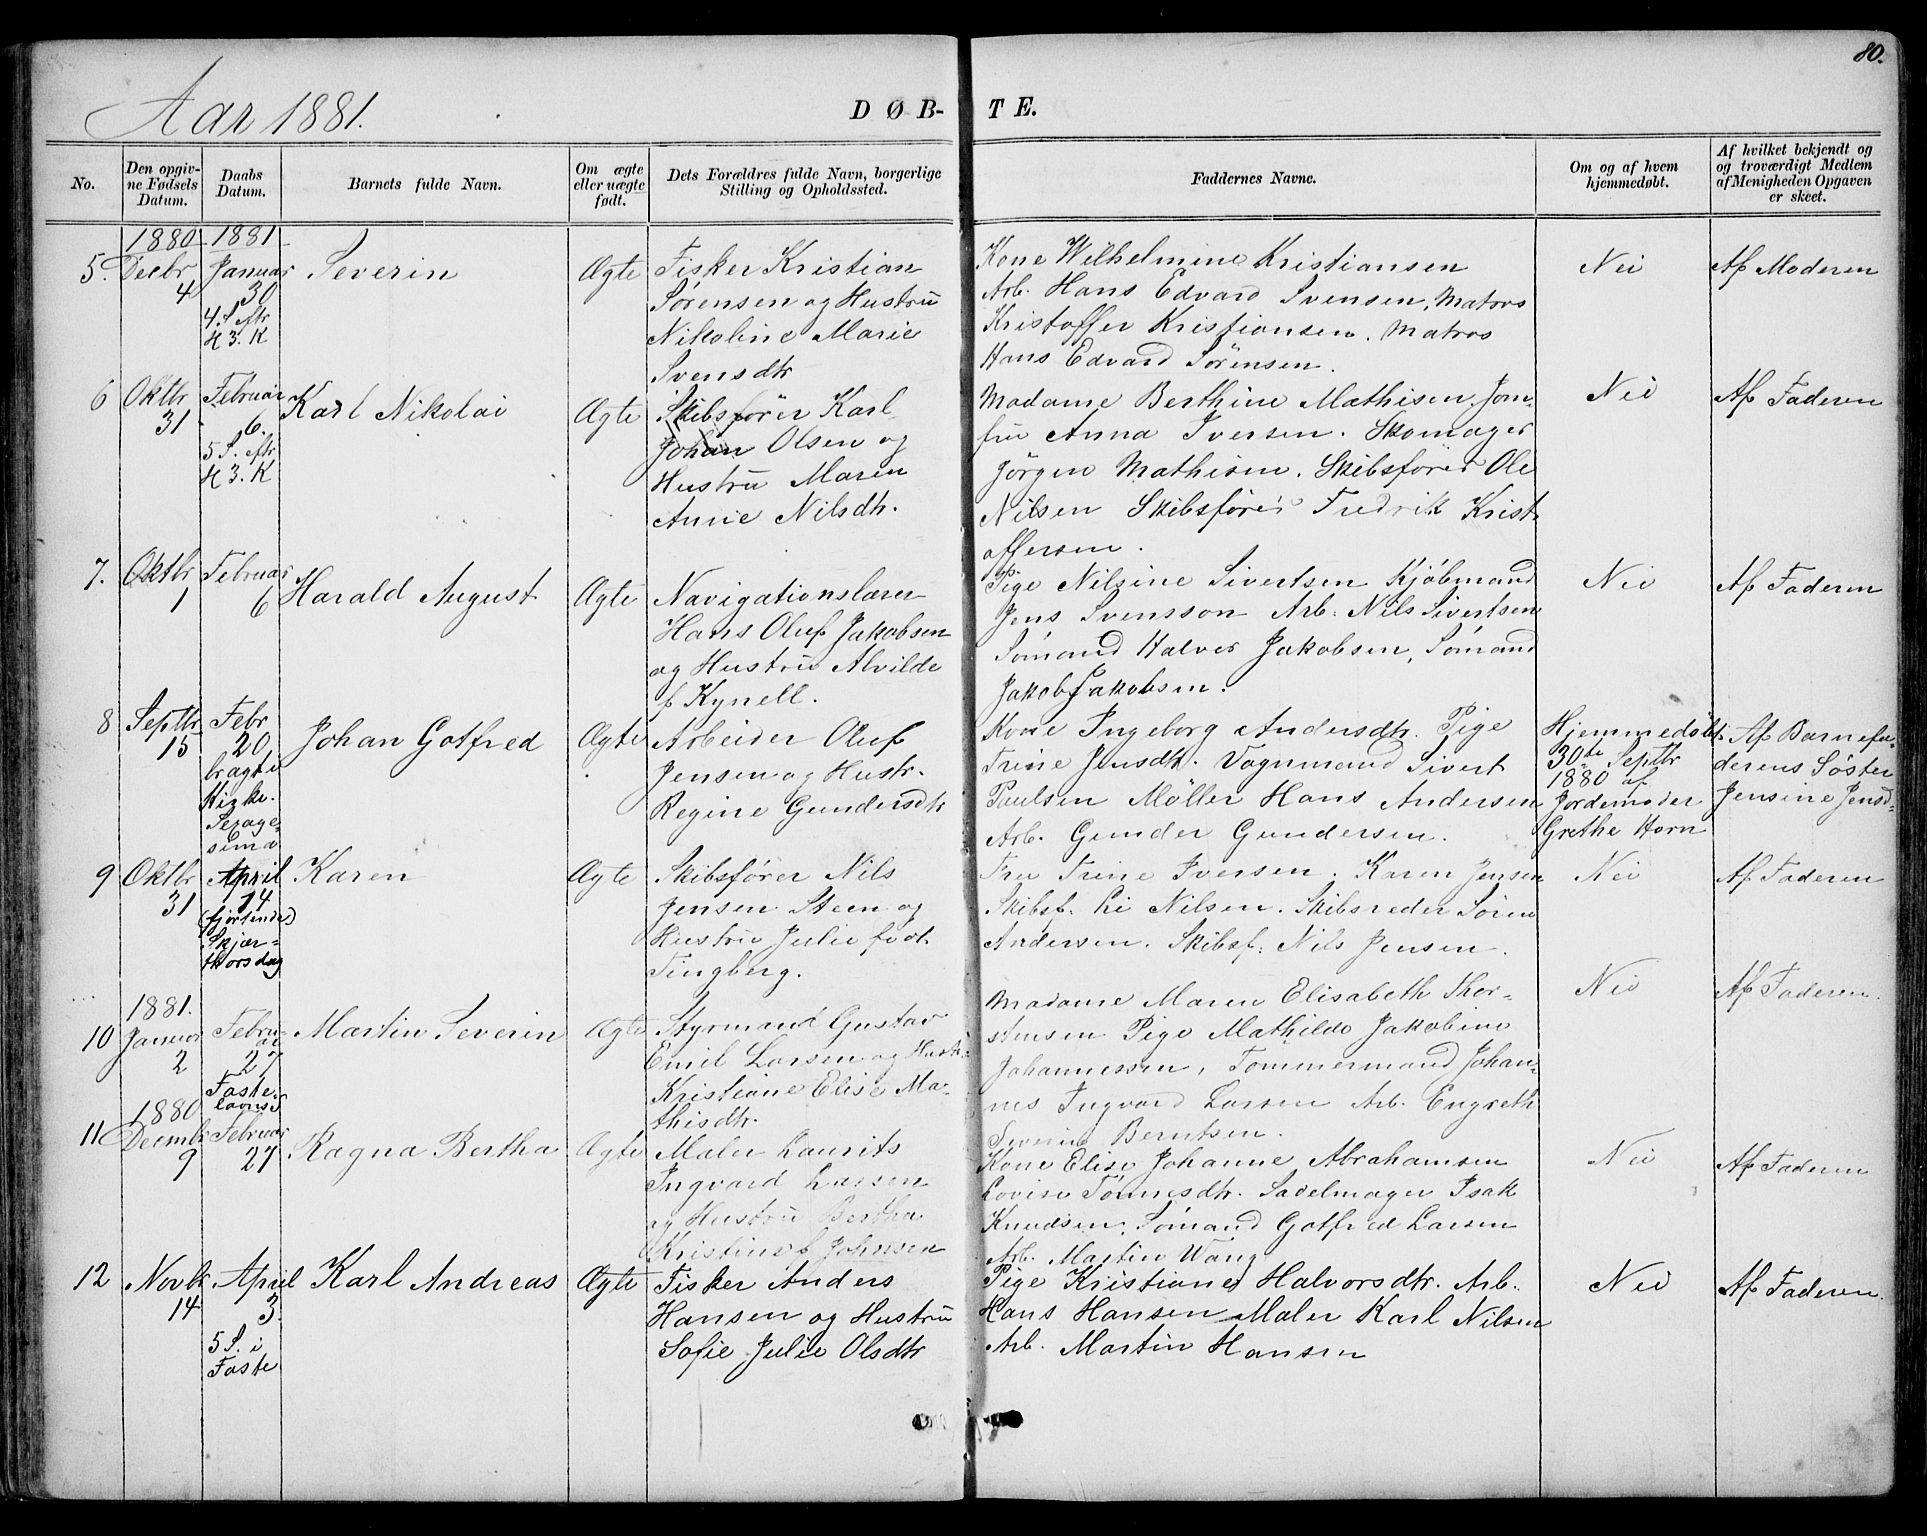 80.
Aar 1881.
DØB-TE.
No.
Den opgiv-
ne Fødsels
Datum.
Daabs
Datum.
Barnets fulde Navn.
Om ægte
eller uægte
født.
Dets Forældres fulde Navn, borgerlige
Stilling og Opholdssted.
Faddernes Navne.
Om og af hvem
hjemmedøbt.
Af hvilket bekjendt og
og troværdigt Medlem
af Menigheden Opgaven
er skeet.
1880
1881
5.
Decbr
4
Januar
30
4. S. eftr
H 3. K
Severin
Ægte
Fisker Kristian
Sørensen og Hustru
Nikoline Marie
Svensdtr
Kone Wilhelmine Kristiansen
Arb. Hans Edvard Svensen, Matros
Kristoffer Kristiansen. Matros
Hans Edvard Sörensen.
Nei
Af Moderen
6
Oktbr
31
Februar
6.
5 S. eftr
H 3. K
Karl Nikolai
Ægte
Skibsförer Karl
Johan Olsen og
Hustru Maren
Anne Nilsdtr.
Madame Berthine Mathisen, Jom-
fru Anna Iversen. Skomager
Jörgen Mathisen. Skibsförer Ole
Nilsen Skibsförer Fredrik Krist
offersen.
Nei
Af Faderen
7.
Oktbr
1
Februar
6
Harald August
Ægte
Navigationslærer
Hans Oluf Jakobsen
og Hustru Alvilde
f Kynell.
Pige Nilsine Sivertsen Kjöbmand
Jens Svensson Arb. Nils Sivertsen
Sømand Halvor Jakobsen, Sømand
Jakob Jakobsen.
Nei
Af Faderen
8
Septbr
15
Febr
20
bragt i
Kirke.
Sexage-
sima
Johan Gotfred
Ægte
Arbeider Oluf
Jensen og Hustr.
Regine Gundersdtr
Kone Ingeborg Andersdtr. Pige
Trine Jensdtr. Vognmand Sivert
Paulsen Møller Hans Andersen
Arb. Gunder Gundersen.
Hjemmedöbt
30te Septbr
1880 af
Jordemoder
Grethe Horn
Af Barnefa-
derens Söster
Jensine Jensd-
9
Oktbr
31
April
14
(fjortende)
Skjær-
thorsdag
Karen
Ægte
Skibsfører Nils
Jensen Steen og
Hustru Julie født
Tingberg.
Fru Trine Iversen. Karen Jensen
Skibsf. Li Nilsen. Skibsreder Sören
Andersen. Skibsf. Nils Jensen.
Nei
Af Faderen
1881.
10
Januar
2
Febru-
ar
27
Faste-
lavns S
Martin Severin
Ægte
Styrmand Gustav
Emil Larsen og Hustr.
Kristiane Elise Ma-
thisdtr.
Madame Maren Elisabeth Thor-
stensen Pige Mathilde Jakobine
Johannessen, Tommermand Johan-
nes Ingvard Larsen Arb. Engreth
Severin Berntsen.
Nei
Af Faderen.
1880
11
Decmbr
9
Februar
27
Ragna Bertha
Ægte
Maler Laurits
Ingvard Larsen
og Hustru Bertha
Kristine f Johnsen
Kone Elise Johanne Abrahamsen
Lovise Tönnesdtr. Sadelmager Isak
Knudsen, Sömand Gotfred Larsen
Arb. Martin Wang
Nei
Af Faderen
12
Novbr
14
April
3.
5 S. i
Faste
Karl Andreas
Ægte
Fisker Anders
Hansen og Hustru
Sofie Julie Olsdtr
Pige Kristiane Halvorsdtr. Arb.
Hans Hansen Maler Karl Nilsen
Arb. Martin Hansen
Nei
Af Faderen.